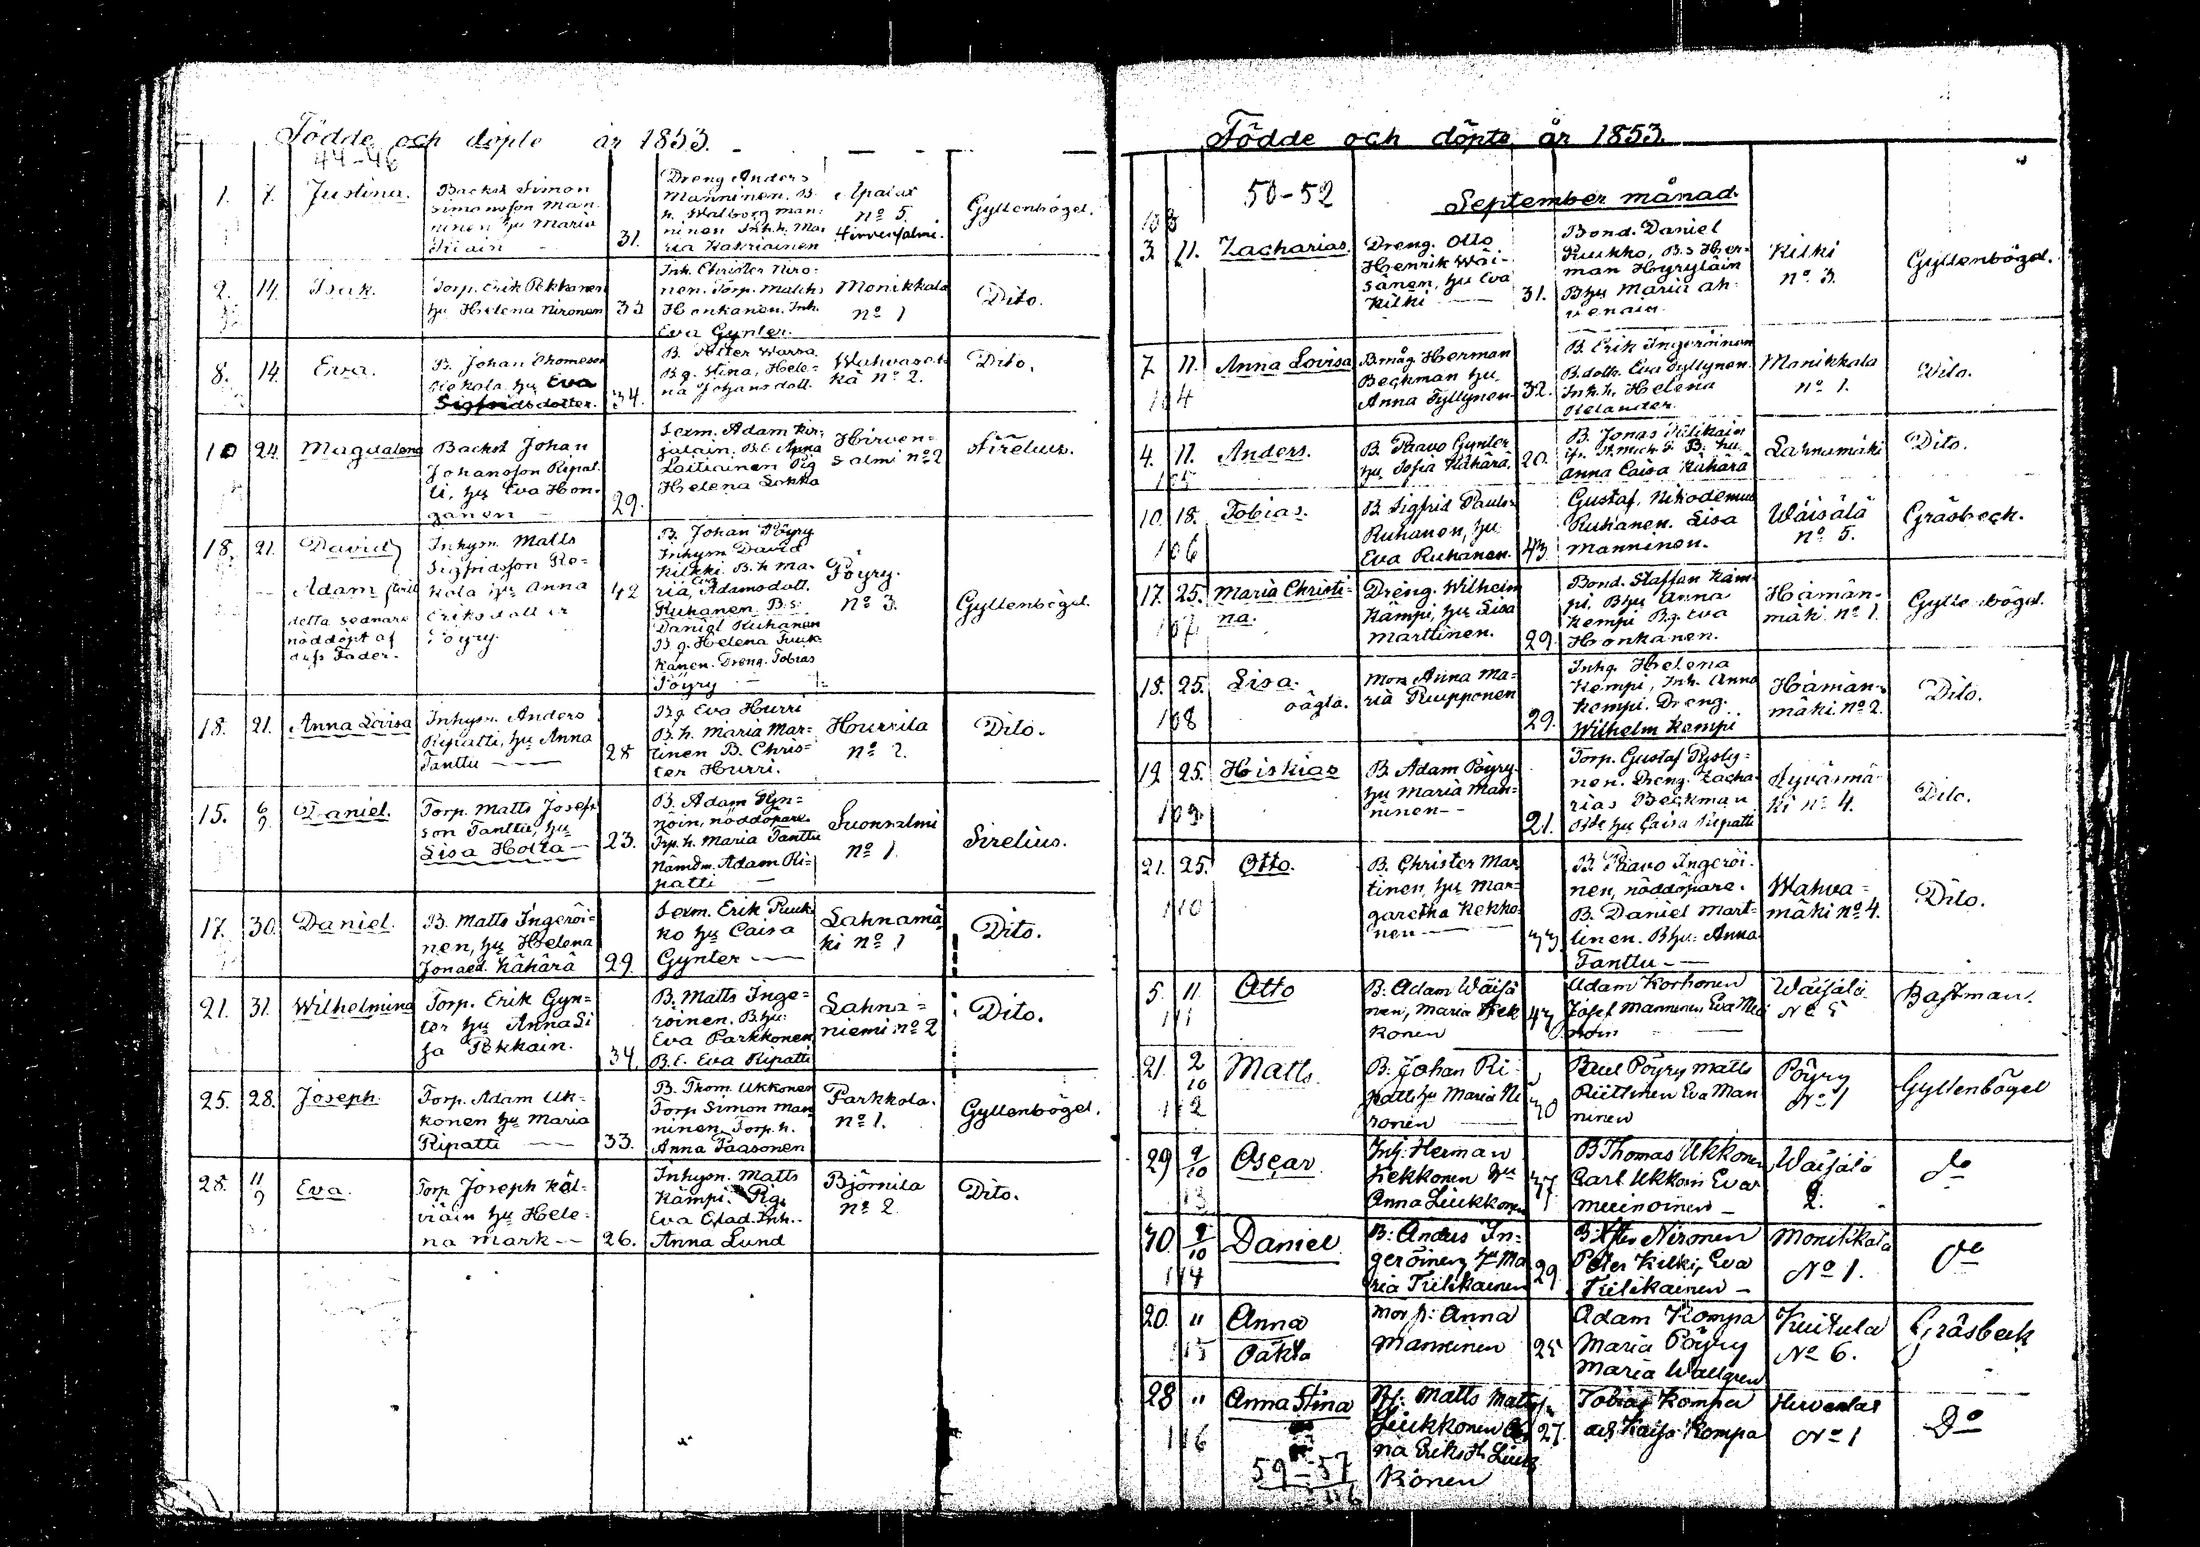 Födde och döpte år 1853.
44-46
1. 7. Justina.
Backst Simon
Simonsson Man-
ninen hu Maria
31.
Dreng Anders
Manninen. B.
h. Walborg Man-
ninen Inh. h. Ma-
ria Hakriainen
nº 5.
Gyllenbögel.
2. 14. Isak.
Torp. Erik Pekkanen
hu Helena Nironen
33
Inh. Christer Niro-
nen. Torp. Matths
Honkanen. Inh.
Eva Gynter.
Monikkala
nº 1
Dito.
8. 14. Eva.
B. Johan Thomeson
hu Eva
Sigfridsdotter.
34.
B. Petter Warra
B. g. Stina, Hele-
na Johansdott.
nº 2.
Dito.
10 24. Magdalena
Backst Johan
Johansson Ripat-
ti, hu Eva Hon-
ganen
29.
Sexm. Adam Kir-
jalain. B. E. Anna
Laitiainen Pig
Helena Sokka
Hirven-
salmi nº 2
Sirelius.
18. 21. David
Adam
detta sednare
nöddöpt af
dess Fader.
Inhysn. Matts
Sigfridsson Ro-
kola hu Anna
Eriksdotter
Pöyry.
42
B. Johan Pöyry
Inhysn David
Kilkki. B. h Ma-
ria, Adamsdott.
Ruhanen. B. s.
Daniel Ruhanen
B. g. Helena Puuk-
kanen. Dreng. Tobias
Pöyry
Pöyry.
nº 3.
Gyllenbögel.
18. 21. Anna Lovisa
Inhysn. Anders
Ripatti, hu Anna
Tanttu
28
B. g. Eva Hurri
B. h. Maria Mar-
tinen B. Chris-
ter Hurri.
Hurrila
nº 2.
Dito.
15. 6/9 Daniel.
Torp. Matts Joseph
son Tanttu, hu
Lisa Holta
23.
B. Adam Hyn-
nöin, nöddöpare
Trp. h. Maria Tanttu
Nämdm. Adam Ri-
patti
Suonsalmi
nº 1.
Sirelius.
17. 30. Daniel.
B. Matts Ingeröi-
nen, hu Helena
Jonaed. Kähärä
29.
Sexm. Erik Puuk-
ko hu Caisa
Gynter
Lahnamä-
ki nº 1
Dito.
21. 31. Wilhelmina
Torp. Erik Gyn-
ter hu Anna Li
sa Pekkain.
34.
B. Matts Inge-
röinen. B hu.
Eva Parkkonen
B. E. Eva Ripatti
Lahna-
niemi nº 2
Dito.
25. 28. Joseph.
Torp. Adam Uk-
konen hu Maria
Ripatti
33.
B. Thom. Ukkonen
Torp Simon Man-
ninen, Torp. h.
Anna Paasonen
Parkkola.
nº 1.
Gyllenbögel.
28. 11/9 Eva.
Torp Joseph Käl-
viäin hu Hele-
na Mark
26.
Inhysn. Matts
Kämpi. Pig.
Eva Glad. Inh.
Anna Lund
Björnila
nº 2.
Dito.
Födde och döpte år 1853.
50-52
September månad.
103
3. 11. Zacharias.
Dreng. Otto
Henrik Wäi-
sänen, hu Eva
Kilki
31.
Bond. Daniel
Puukko, B. s Her-
man Hyryläin
B hu Maria Ah-
venain.
Kilki
nº 3.
Gyllenbögel.
7. 11. Anna Lovisa
104
Bmåg Herman
Beckman hu
Anna Tyllynen
32.
B. Erik Ingeröinen
B. dott. Eva Tyllynen.
Inh. h. Helena
Helander.
Monikkala
nº 1.
Dito.
4. 11. Anders.
105
B. Paavo Gynter
hu Sofia Kähärä.
20.
B. Jonas Tiilikain
Anna Caisa Kähärä
Lahnamäki
Dito.
10. 18. Tobias.
106
B. Sigfrid Pauls-
Ruhanen, hu
Eva Ruhanen.
43
Gustaf, Nikodemus
Ruhanen. Lisa
Manninen.
Wäisälä
nº 5.
Gräsbeck.
17. 25. Maria Christi-
na.
107
Dreng. Wilhelm
Kämpi, hu Lisa
Marttinen.
29.
Bond. Staffan Käm-
pi. B hu Anna
Kempi B. g. Eva
Honkanen.
Hämän-
mäki nº 1.
Gyllenbögel.
18. 25. Lisa.
oägta.
108
Mor Anna Ma-
ria Ruupponen
29.
Inhg. Helena
Kempi, Inh. Anna
Kempi. Dreng.
Wilhelm Kempi
Hämän-
mäki nº 2.
Dito.
19. 25. Hiskias
109
B. Adam Pöyry
hu Maria Man-
ninen
21.
Torp. Gustaf Pysty-
nen. Dreng. Zacha-
rias Beckman
hu Caisa Ripatti
Syväsmä-
ki nº 4.
Dito.
21. 25. Otto.
110
B. Christer Mar
tinen, hu Mar-
garetha Kekko-
nen
33
B. Paavo Ingeröi-
nen, nöddöpare.
B. Daniel Mart-
tinen. B hu. Anna
Tanttu
Wahva-
mäki nº 4.
Dito.
5. 11 Otto
111
B. Adam Wäisä
nen, Maria Kek
konen
43
Adam Korhonen
Josef Manninen Eva
Wäisälä
Nº 5
Bastman.
21. 2/10 Matts.
112
B. Johan Ri-
patti hu Maria Ni
ronen
30
Paul Pöyry Matts
Eva Man
ninen
Pöyry
Nº 1
Gyllenbögel
29 9/10 Oscar.
113
Inh. Herman
Kekkonen hu
Anna Liukkonen
37
B Thomas Ukkonen
Carl Ukkoin Eva
Muinoinen
Wäisälä
2.
do
30 9/10 Daniel
114
B: Anders In-
geröinen, hu Ma
ria Tiilikainen
29
Nironen
Peter Kilki, Eva
Tiilikainen
Monikkala
Nº 1.
do
20. " Anna
115 Oäkta
Mor p: Anna
Manninen
25
Adam Kompa
Maria Pöyry
Maria Wallgren
Kuitula
Nº 6.
Gräsbeck
28 " Anna Stina
116
Matts Matts
Liukkonen
na Eriksd. Liuk
konen
27
Tobias Kompa
och Kaisa Kompa
Nº 1
Do
59-57
116